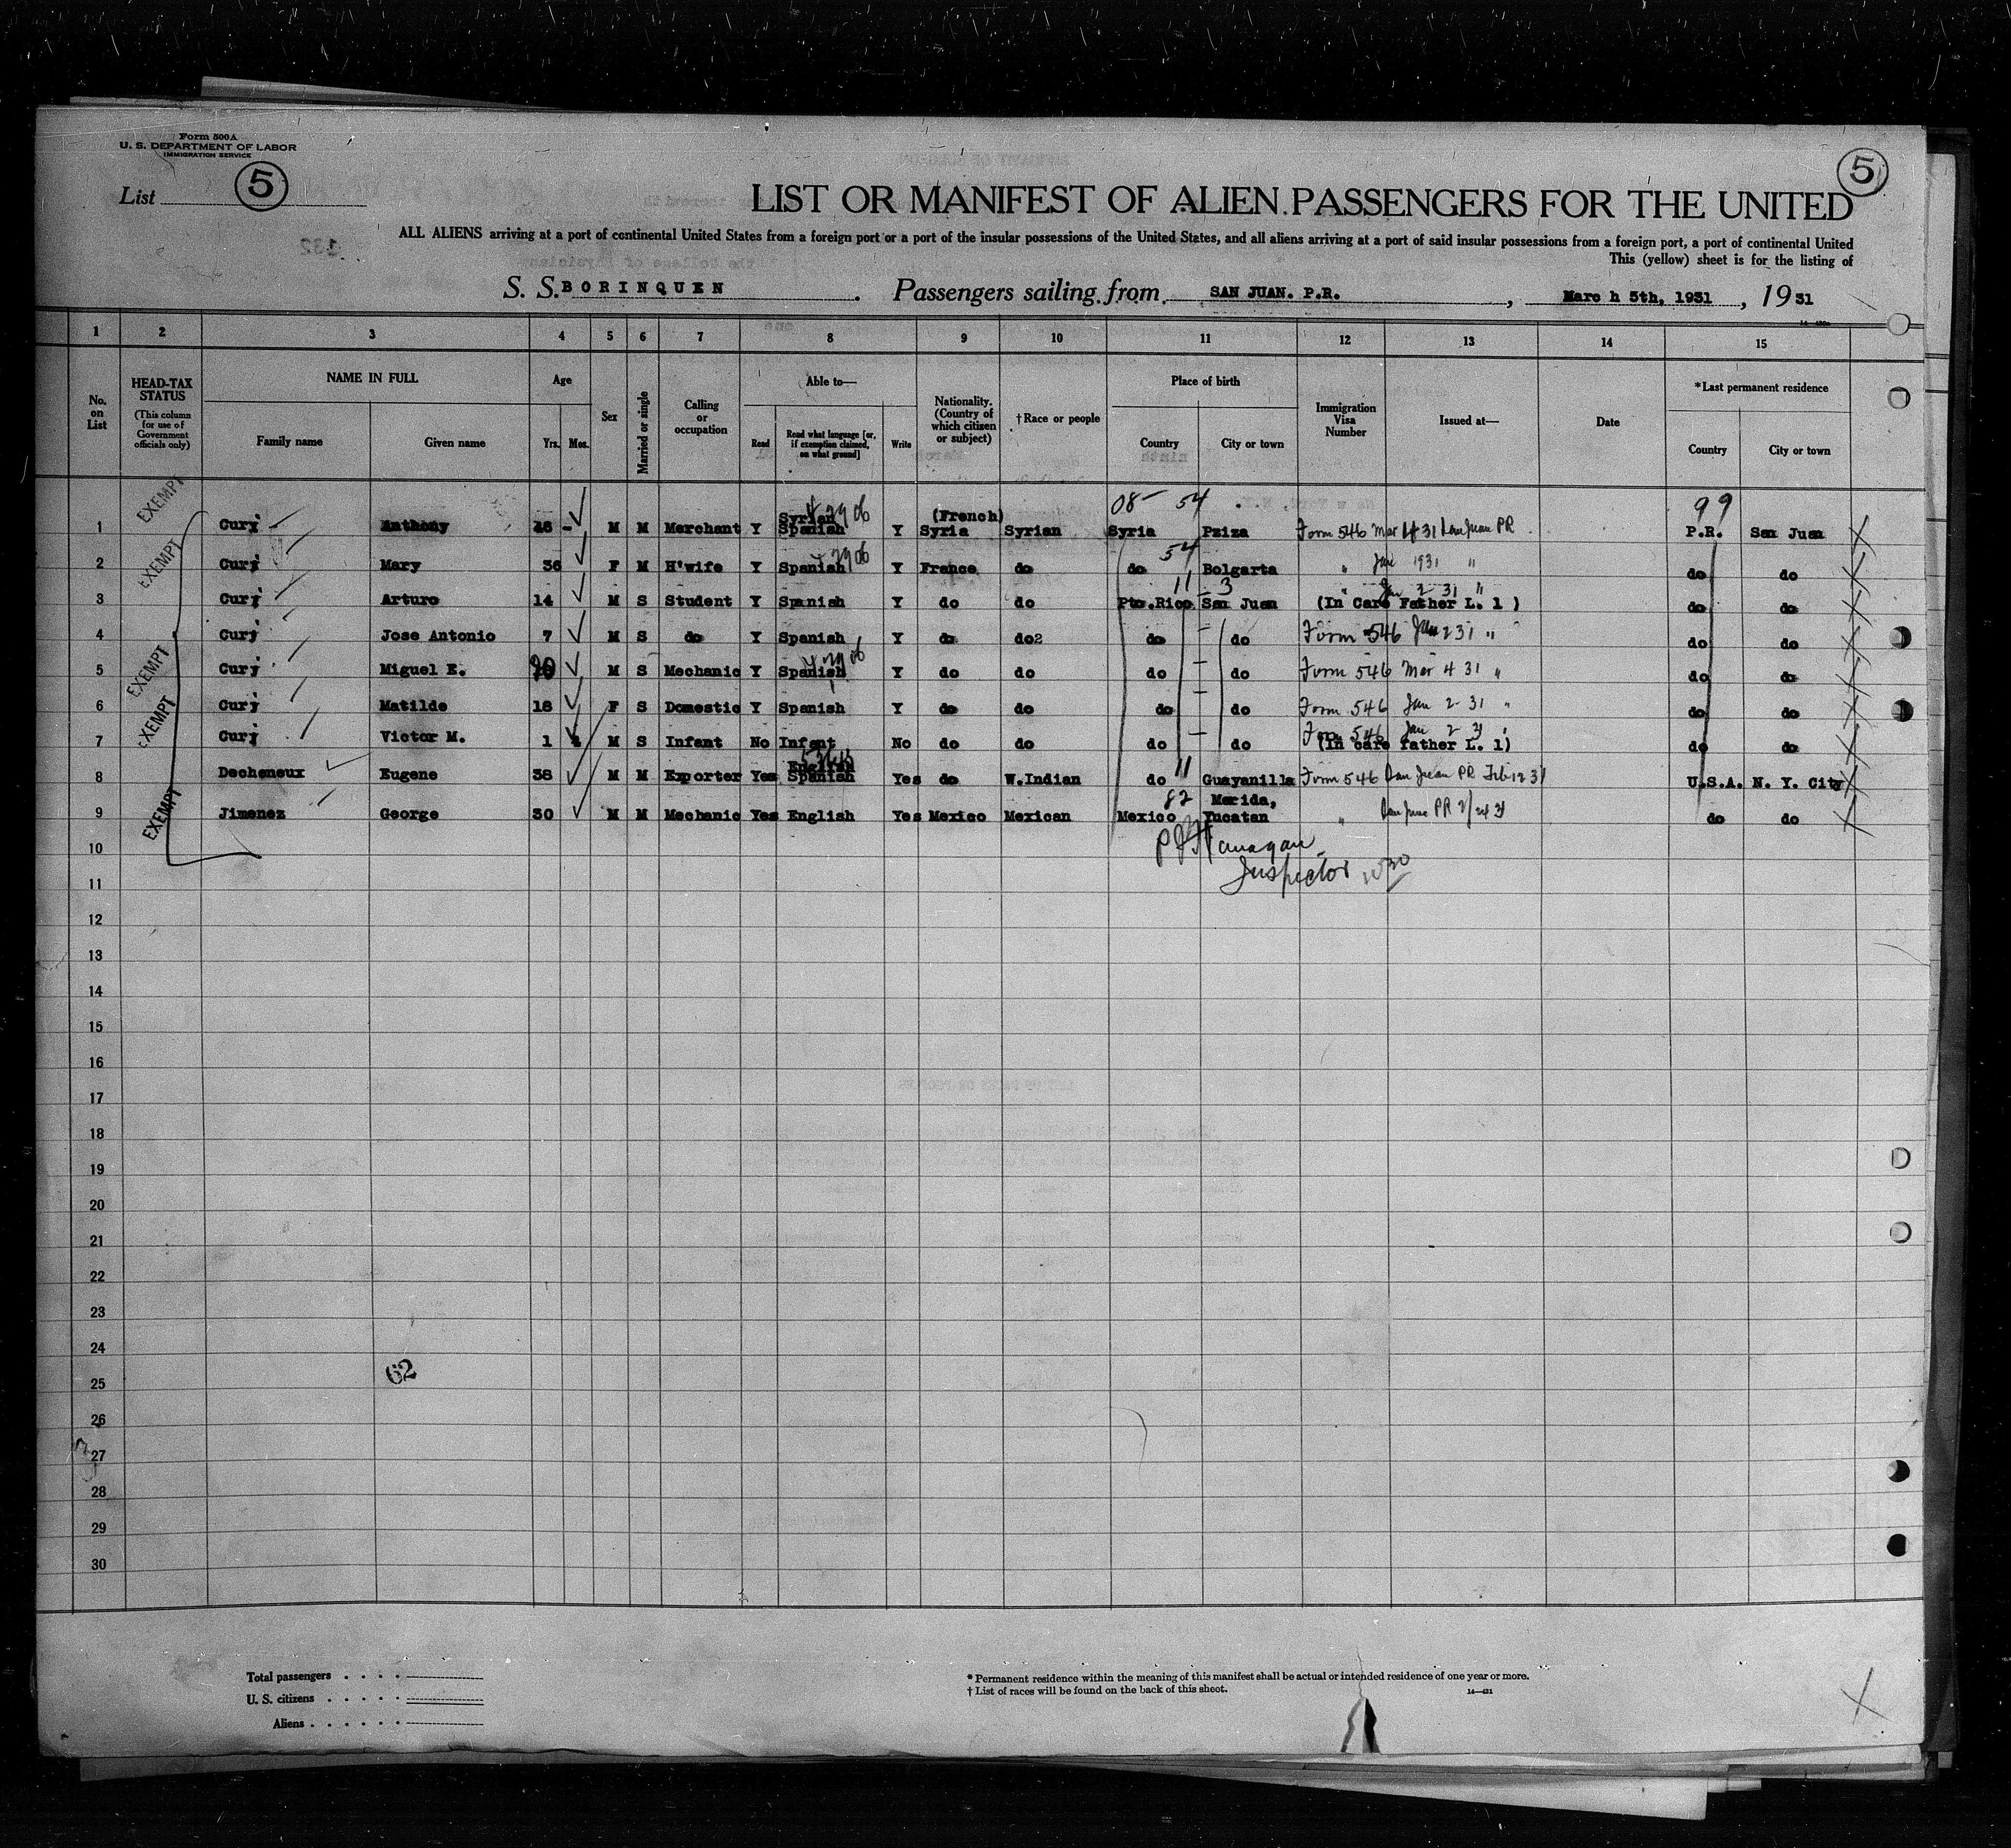 Form 500A
U. S. DEPARTMENT OF LABOR
IMMIGRATION SERVICE
List 5
5
LIST OR MANIFEST OF ALIEN PASSENGERS FOR THE UNITED
ALL ALIENS arriving at a port of continental United States from a foreign port or a port of the insular possessions of the United States, and all aliens arriving at a port of said insular possessions from a foreign port, a port of continental United
This (yellow) sheet is for the listing of
S. S. BORINQUEN . Passengers sailing from SAN JUAN. P.R. , Marc h 5th, 1931 , 19 31
1 2 3 4 5 6 7 8 9 10 11 12 13 14 15
No. on List
HEAD-TAX STATUS
(This column for use of Government officials only)
NAME IN FULL
Family name Given name
Age
Yrs. Mos.
Sex
Married or single
Calling or occupation
Able to—
Read
Read what language [or, if exemption claimed, on what ground]
Write
Nationality. (Country of which citizen or subject)
†Race or people
Place of birth
Country City or town
Immigration Visa Number
Issued at—
Date
*Last permanent residence
Country City or town
08 - 54 99
1 EXEMPT Curi Anthony - M M Merchant Y Syrian Spanish Y (French) Syria Syrian Syria Pziza Form 546 Mar 4 31 San Juan PR P.R. San Juan
2 EXEMPT Curi Mary 36 F M H'wife Y Spanish Y France do do 54 Bolgarta " Jan 1931 " do do
3 Curi Arturo 14 M S Student Y Spanish Y do do Pto.Rico 11 - 3 San Juan " Jan 2 31 " (In Care Father L. 1 ) do do
4 Curi Jose Antonio 7 M S do Y Spanish Y do do2 do do Form 546 Jan 2 31 " do do
5 EXEMPT Curi Miguel E. 20 M S Mechanic Y Spanish Y do do do do Form 546 Mar 4 31 " do do
6 EXEMPT Curi Matilde 18 F S Domestic Y Spanish Y do do do do Form 546 Jan 2 31 " do do
7 Curi Victor M. 1 M S Infant No Infant No do do do do Form 546 Jan 2 31 (In care father L. 1) do do
8 Decheneux Eugene 38 M M Exporter Yes English Spanish Yes do W.Indian do 11 Guayanilla Form 546 San Juan PR Feb 12 31 U.S.A. N. Y. City
9 EXEMPT Jimenez George 30 M M Mechanic Yes English Yes Mexico Mexican Mexico 82 Merida, Yucatan " San Juan PR 2/24 31 do do
10
Inspector
11
12
13
14
15
16
17
18
19
20
21
22
23
24
62
25
26
27
28
29
30
Total passengers . . . .
U. S. citizens . . . . .
Aliens . . . . . .
* Permanent residence within the meaning of this manifest shall be actual or intended residence of one year or more.
† List of races will be found on the back of this sheet.
14—421